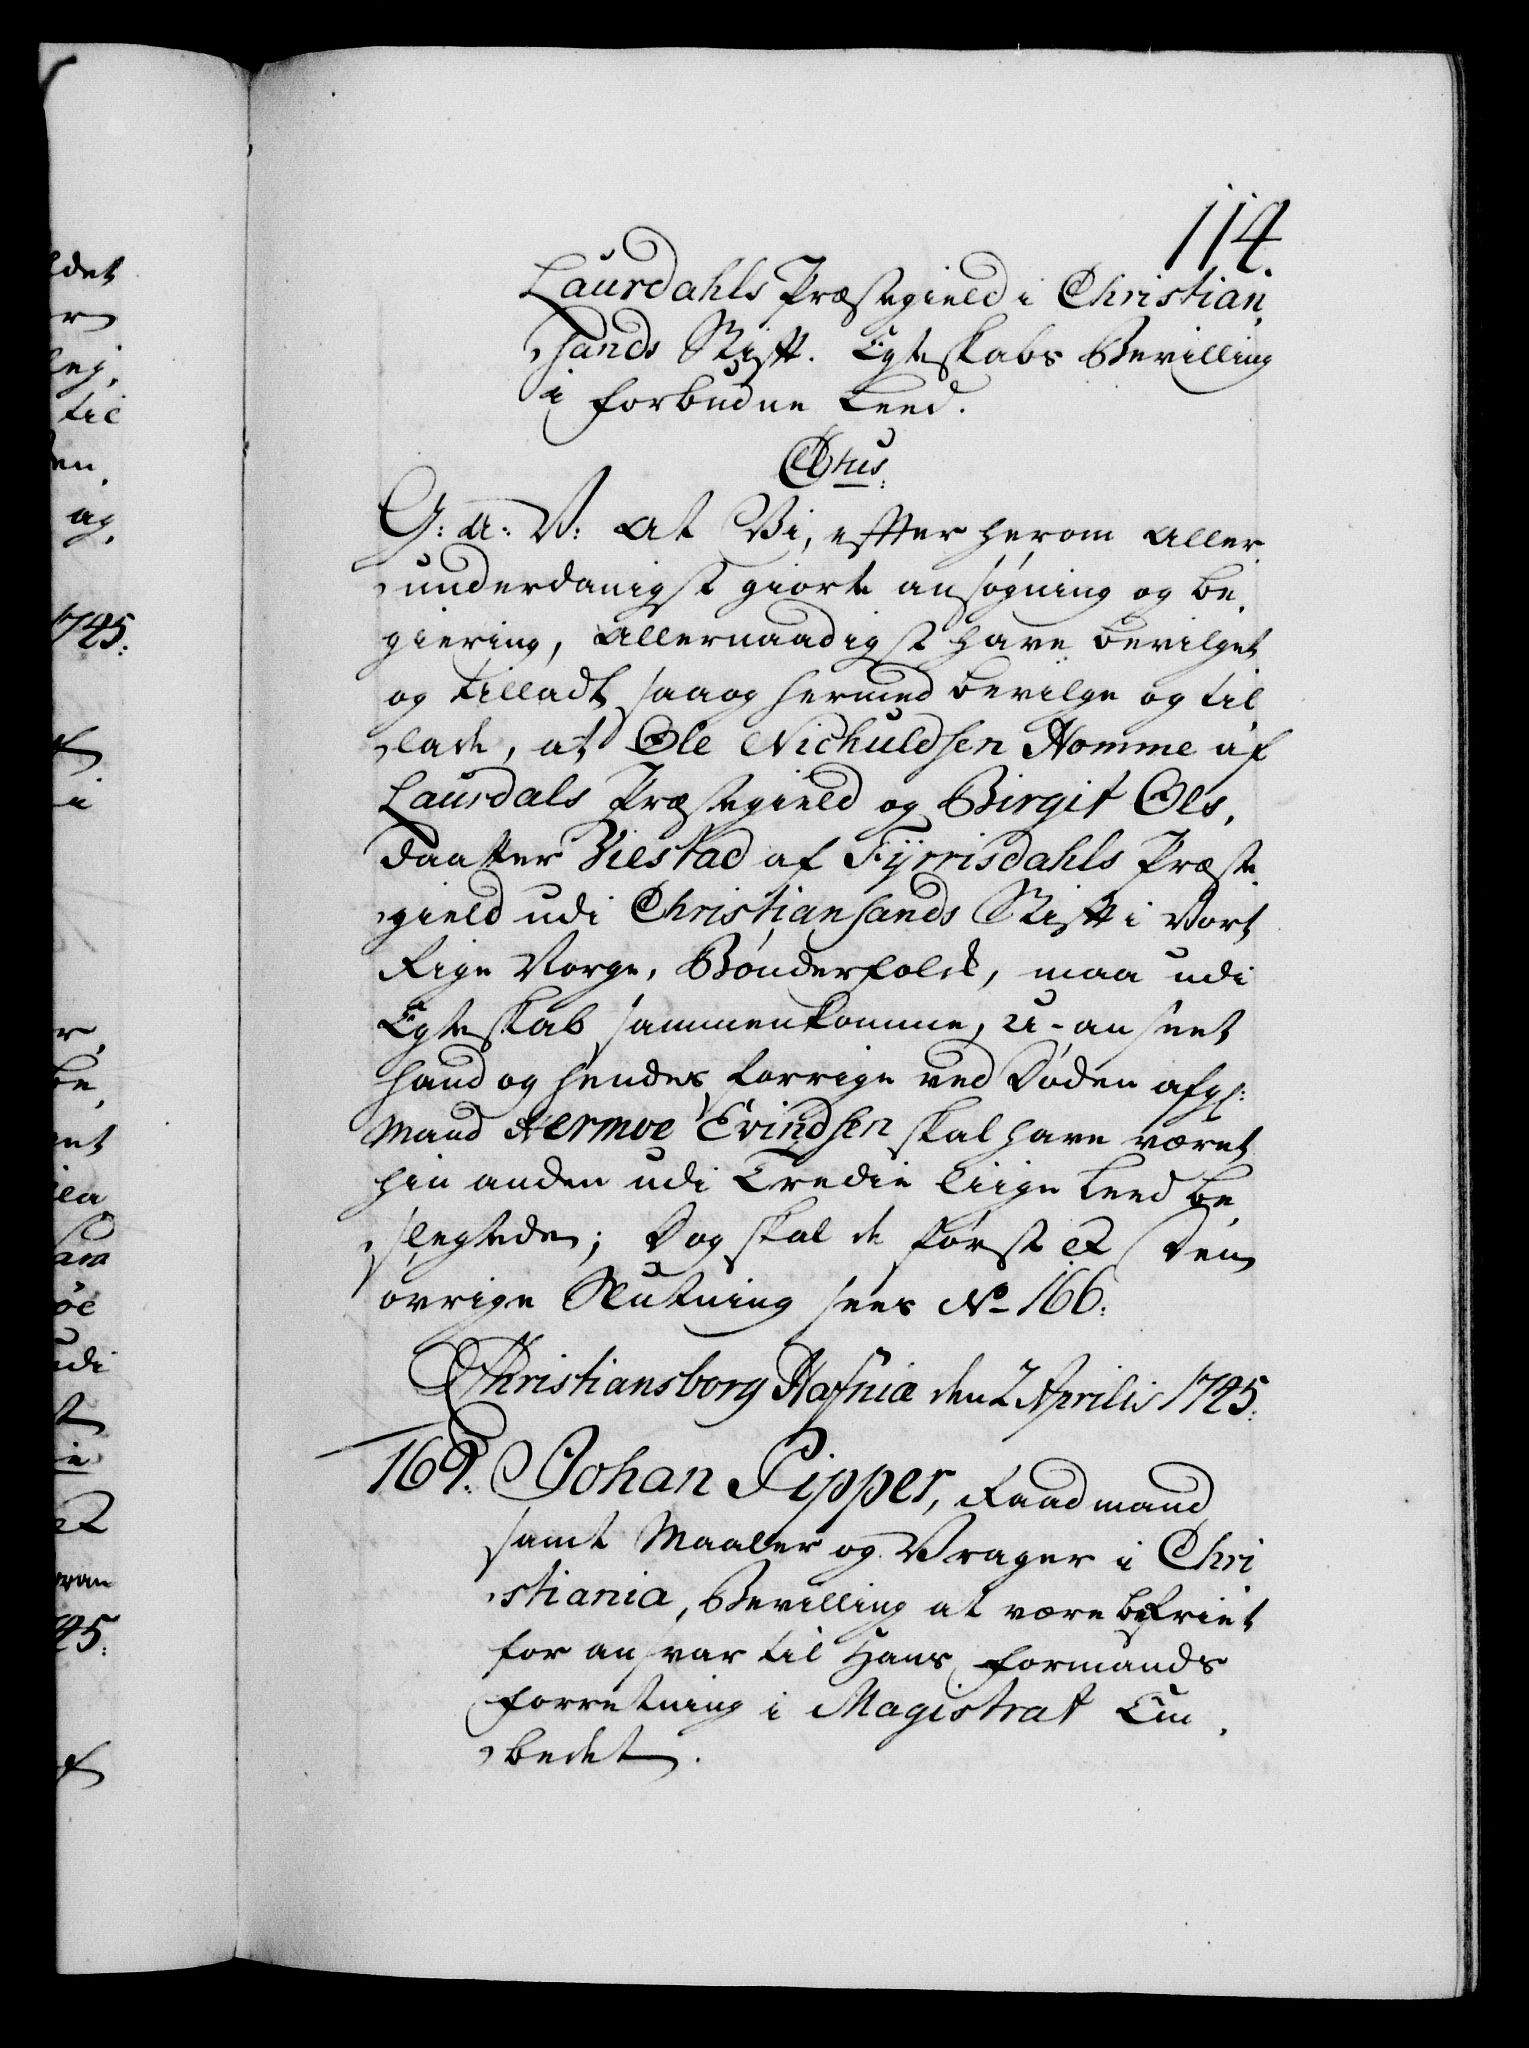 114.
Laurdahls Præstegield i Christian,
sands Stift. Egteskabs Bevilling
i forbudne Leed.
Ctus.
G: A: V: At Vi, effter herom Aller
underdanigst giorte ansøgning og be,
giering, Allernaadigst have bevilget
og tilladt, saa og hermed bevilge og til
lade, at Ole Nichuldsen Homme af
Laurdals Præstegield og Birgit Ols,
daatter Viestad af Fÿrrisdahls Præste
gield udi Christiansands Stift i Vort
Rige Norge, Bønderfolck, maa udi
Egteskab sammenkomme, u-anseet
hand og hendes forrige ved Døden afg:
Mand Hermoe Evindsen skal have været
hin anden udi Tredie liige Leed be,
slegtede; Dog skal de først &c Den
øvrige Slutning sees No 166.
Christiansborg Hafniæ den 2 Aprilis 1745.
169. Johan Pipper, Raadmand
samt Maaler og Vrager i Chri
stiania, Bevilling at være befriet
for ansvar til Hans Formands
Forretning i Magistrat Em,
bedet.
det
er
til
en,
og,
1745:
i
r,
be,
et
øe
udi
&c
745: